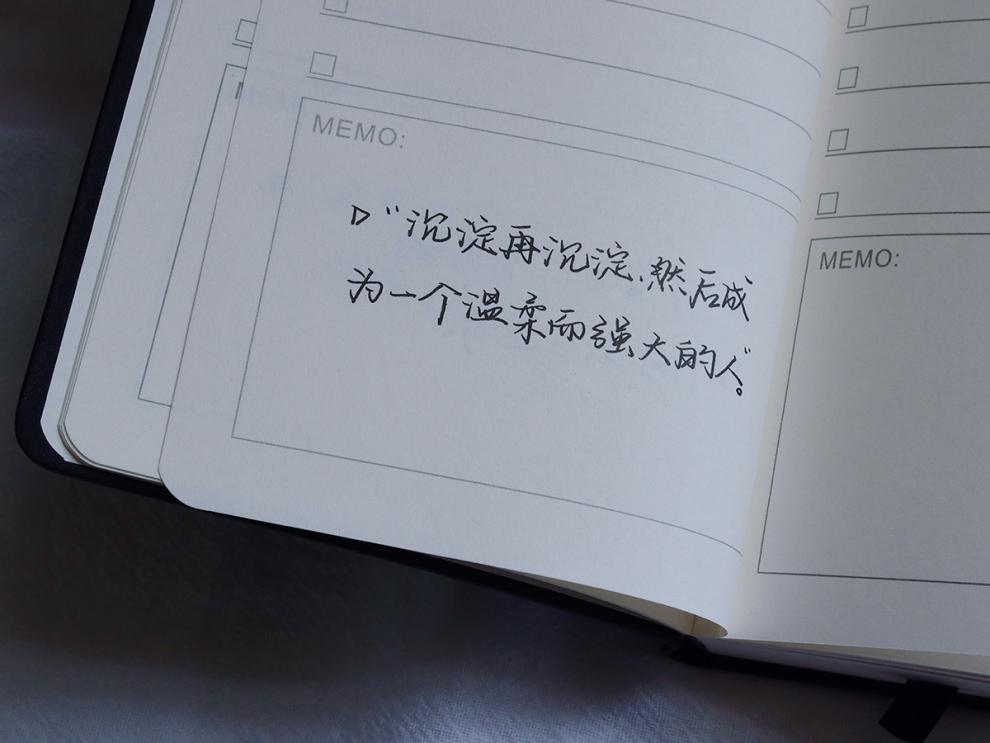 MEMO:
▷“沉淀再沉淀、然后成
为一个温柔而强大的人”。
MEMO: